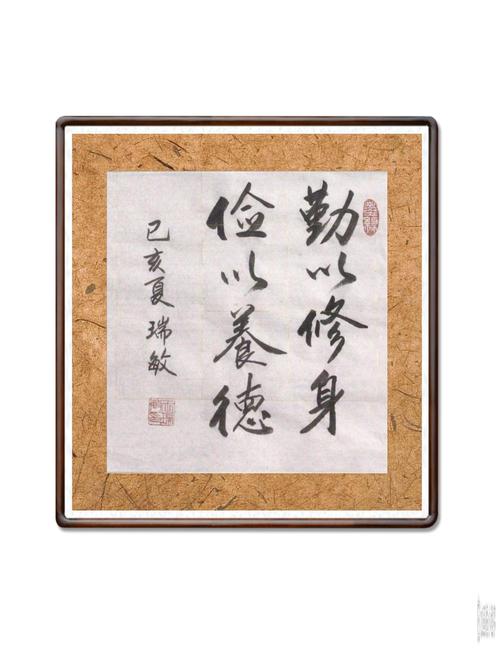 勤以修身
俭以養德
己亥夏 瑞敏